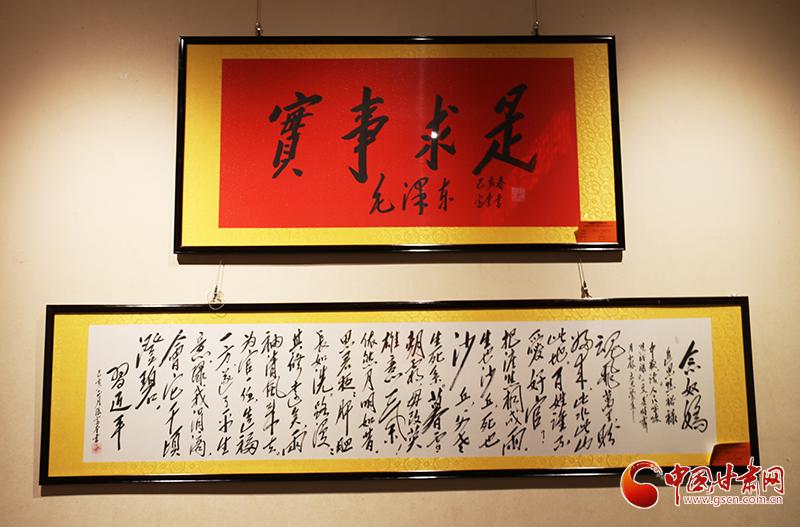 實事求是
毛澤东
己亥春
念奴嬌
魂飛萬里盼
歸来此水此山
此地百姓誰不
爱好官？
把淚焦桐成雨
生也沙丘死也
沙丘父老
生死系暮雪
朝霜毋改英
雄意气！
依然月明如昔
思君夜夜肝胆
長如洗路漫漫
其修遠矣兩
袖清風来去
為官一任造福
一方遂了平生
意緑我涓滴
會它千頃
澄碧
習近平
中国甘肃网
www.gscn.com.cn